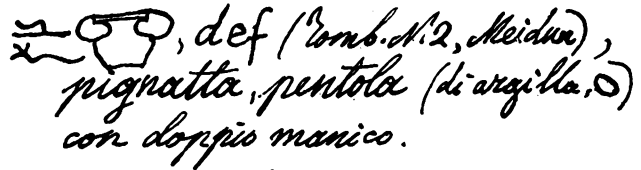 , def (Tomb. N. 2, Meidum),
pignatta, pentola (di argilla, )
con doppio manico.